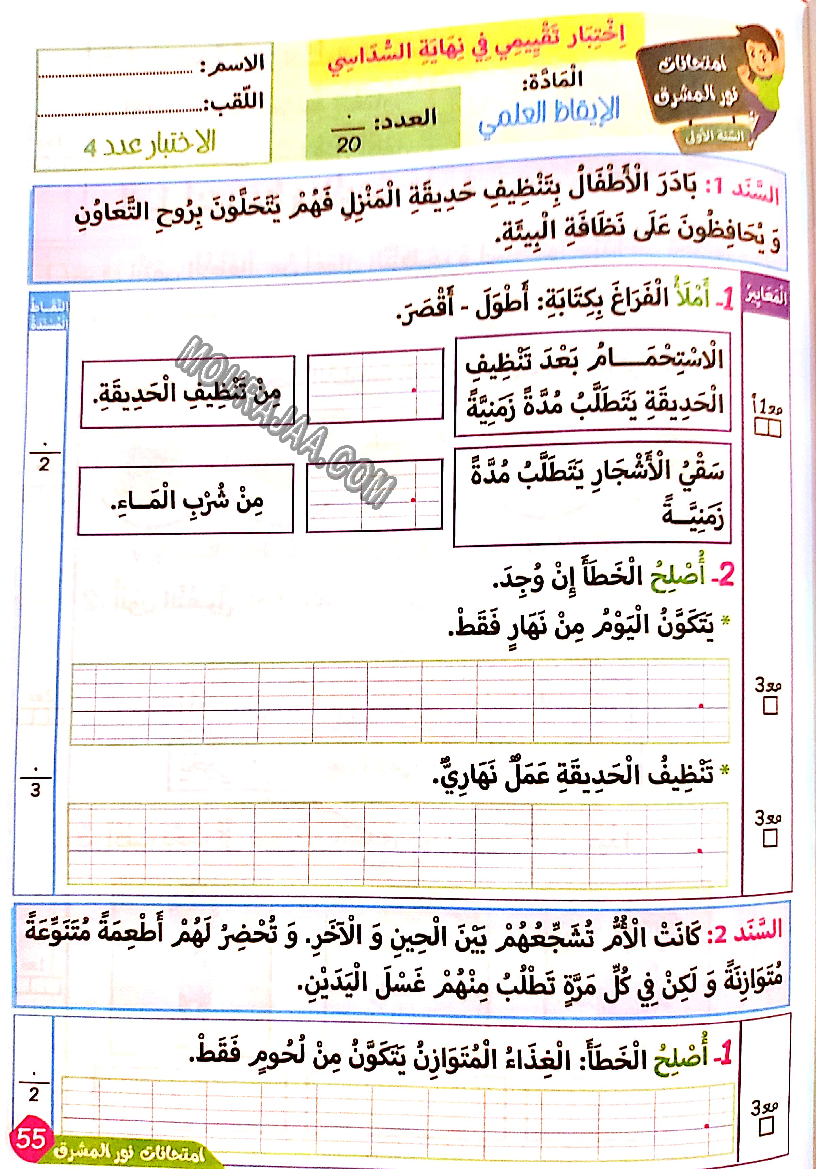 اِخْتِبَار تَقْيِيمِي فِي نِهَايَةِ السُّدَاسِي
امتحانات
نور المشرق
السّنة الأولى
الْمَادَّة:
الإيقاظ العلمي
العدد: ./20
الاسم: ........................
اللّقب: ........................
الاختبار عدد 4
السَّنَد 1: بَادَرَ الْأَطْفَالُ بِتَنْظِيفِ حَدِيقَةِ الْمَنْزِلِ فَهُمْ يَتَحَلَّوْنَ بِرُوحِ التَّعَاوُنِ
وَ يُحَافِظُونَ عَلَى نَظَافَةِ الْبِيئَةِ.
الْمَعَايِيرُ
النّقاط المسندة
1- أَمْلَأُ الْفَرَاغَ بِكِتَابَةِ: أَطْوَلَ - أَقْصَرَ.
الْاسْتِحْمَـــامُ بَعْدَ تَنْظِيفِ
الْحَدِيقَةِ يَتَطَلَّبُ مُدَّةً زَمَنِيَّةً
مِنْ تَنْظِيفِ الْحَدِيقَةِ.
مع1أ
./2
سَقْيُ الْأَشْجَارِ يَتَطَلَّبُ مُدَّةً
زَمَنِيَّــةً
مِنْ شُرْبِ الْمَـاءِ.
2- أُصْلِحُ الْخَطَأَ إِنْ وُجِدَ.
* يَتَكَوَّنُ الْيَوْمُ مِنْ نَهَارٍ فَقَطْ.
مع3
* تَنْظِيفُ الْحَدِيقَةِ عَمَلٌ نَهَارِيٌّ.
./3
مع3
السَّنَد 2: كَانَتْ الْأُمُّ تُشَجِّعُهُمْ بَيْنَ الْحِينِ وَ الْآخَرِ. وَ تُحْضِرُ لَهُمْ أَطْعِمَةً مُتَنَوِّعَةً
مُتَوَازِنَةً وَ لَكِنْ فِي كُلِّ مَرَّةٍ تَطْلُبُ مِنْهُمْ غَسْلَ الْيَدَيْنِ.
1- أُصْلِحُ الْخَطَأَ: الْغِذَاءُ الْمُتَوَازِنُ يَتَكَوَّنُ مِنْ لُحُومٍ فَقَطْ.
./2
مع3
55
امتحانات نور المشرق
MOURAJAA.COM